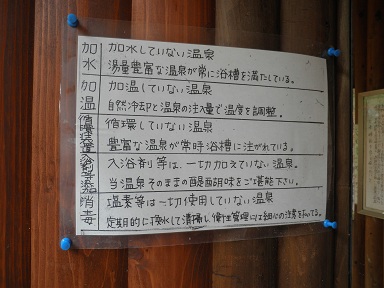 加水 加水していない温泉
湯量豊富な温泉が常に浴槽を満たしている。
加温 加温していない温泉
自然冷却と温泉の注入量で温度を調整。
循環装置 循環していない温泉
豊富な温泉が常時浴槽に注がれている。
入浴剤等は一切加えていない温泉。
当温泉そのままの醍醐味をご堪能下さい。
消毒 塩素等は一切使用していない温泉
定期的に換水して清掃し衛生管理には細心の注意を払ってる。